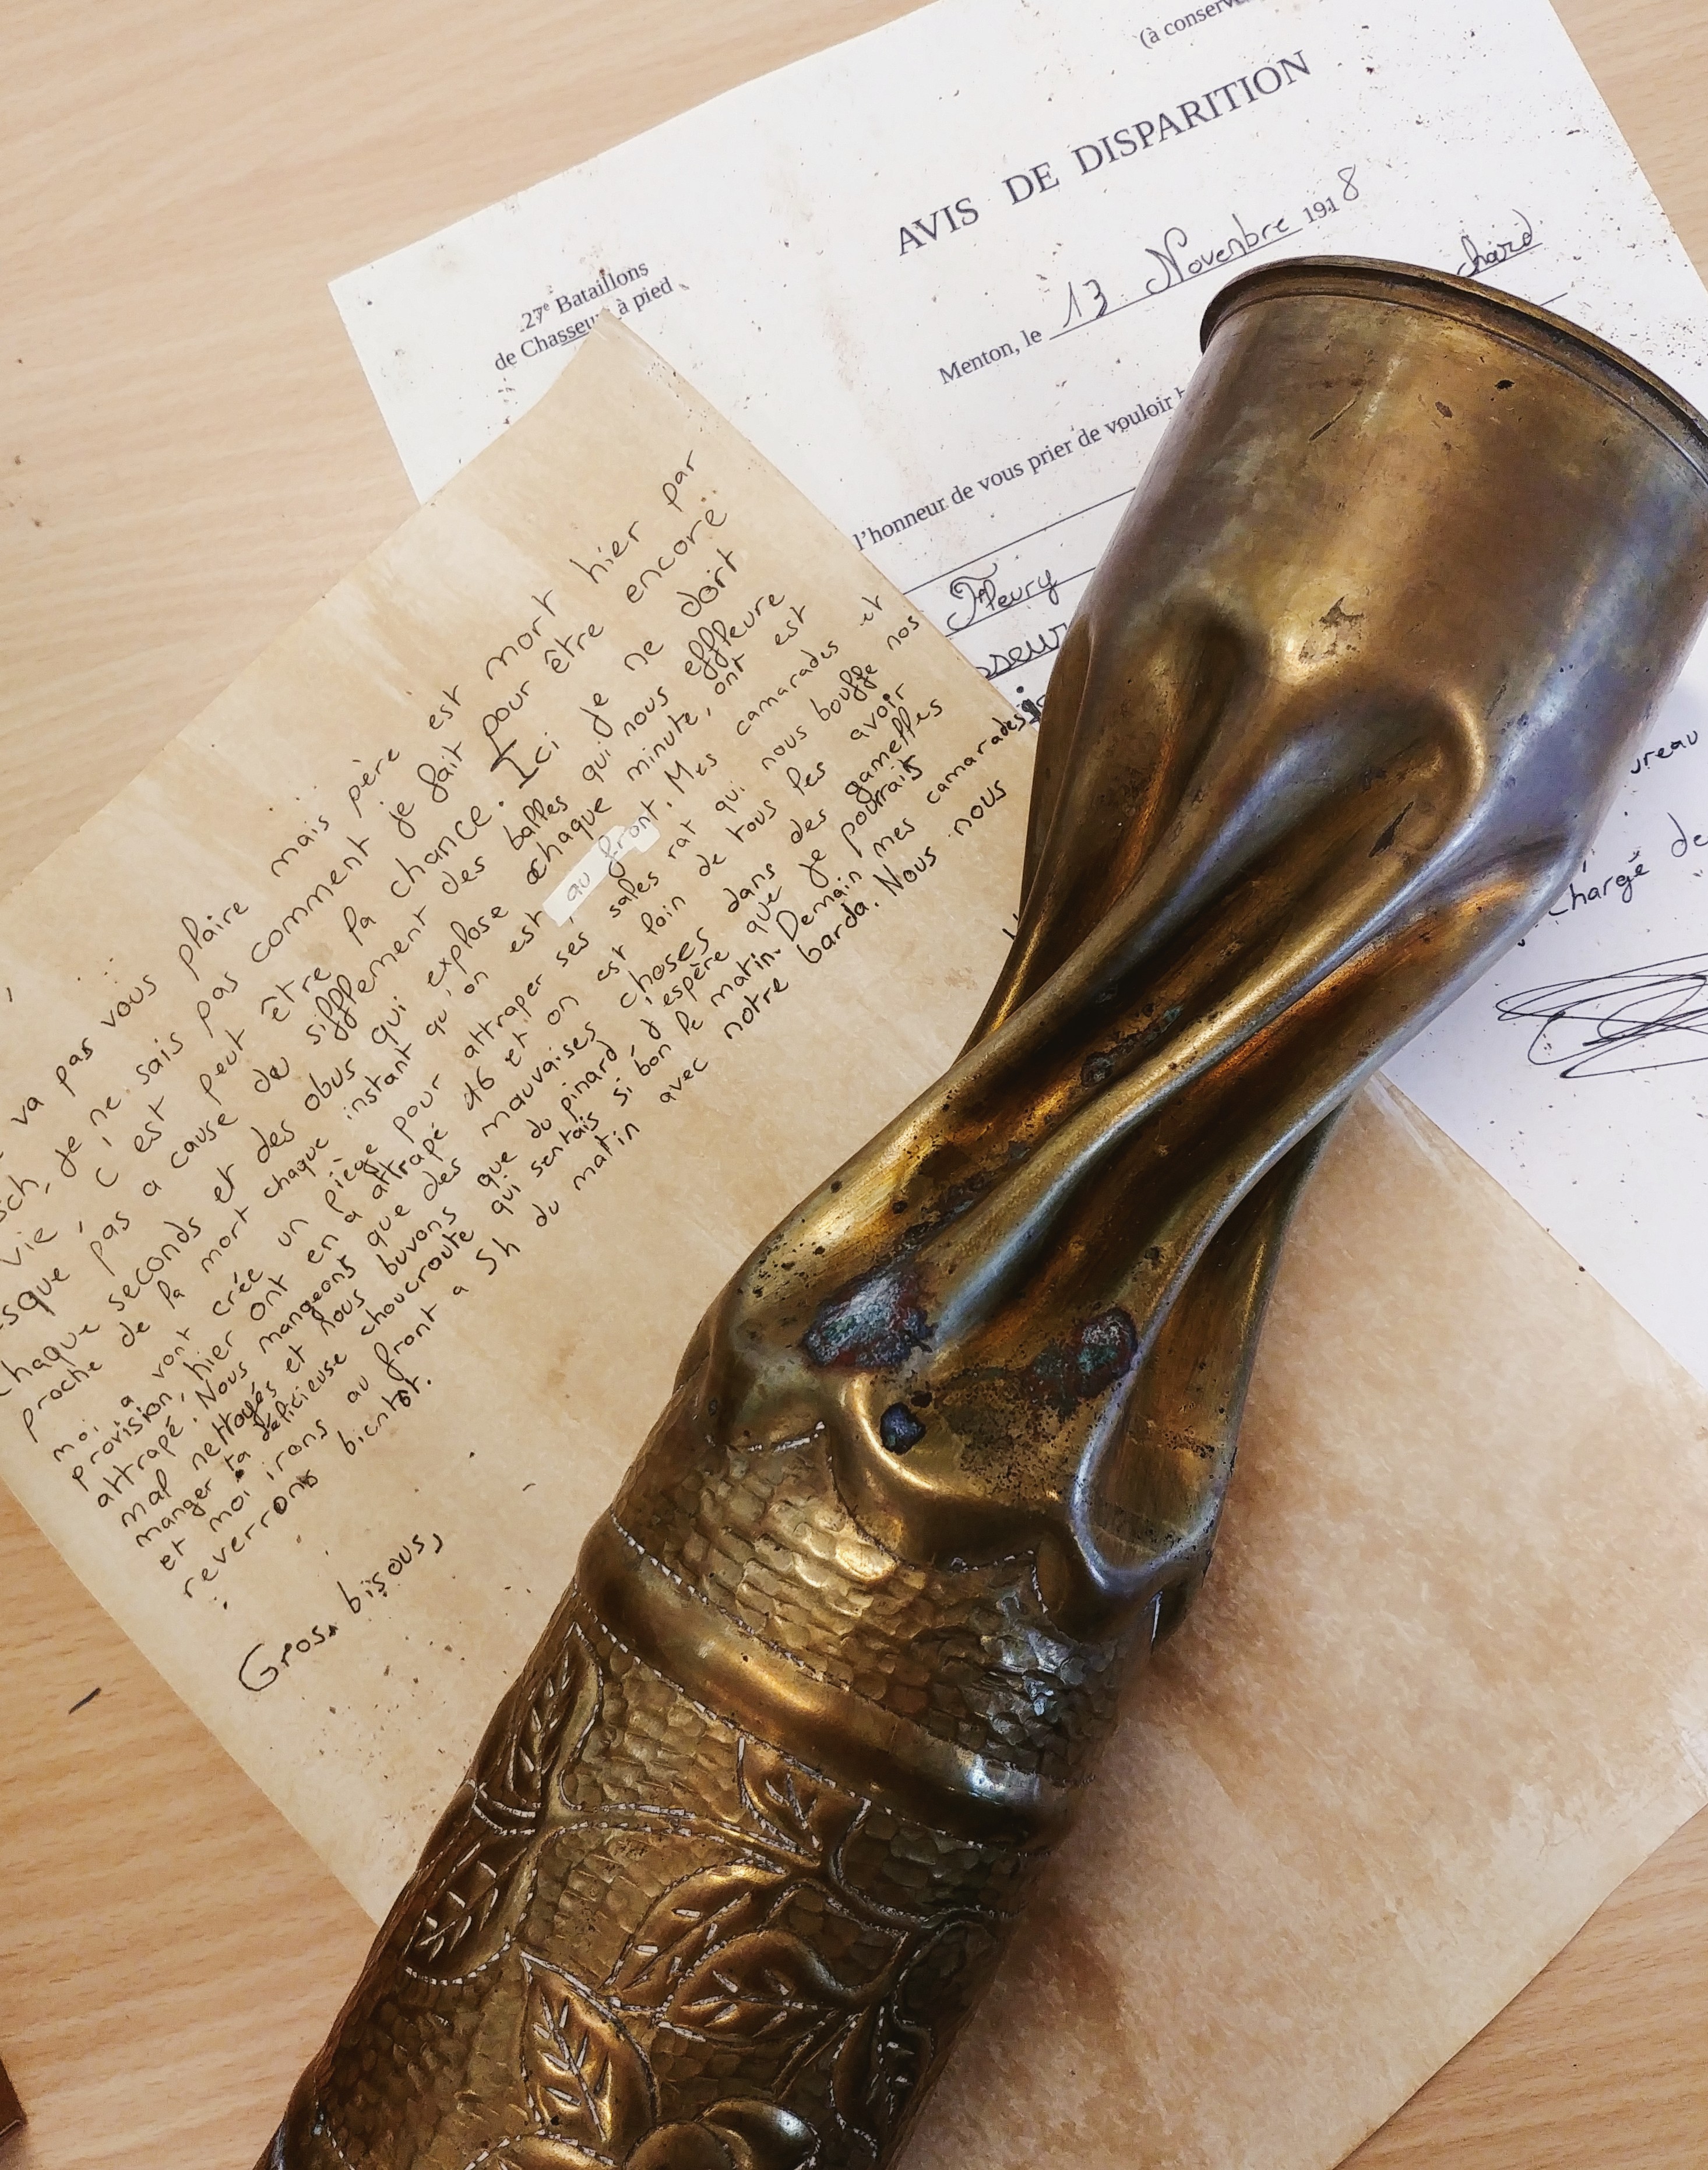 (à conserve
AVIS DE DISPARITION
27e Bataillons
de Chasseurs à pied
Menton, le 13 Novenbre 1918
chard
l'honneur de vous prier de vouloir
Fleury
sseur
ureau
chargé de
va pas vous plaire mais père est mort hier par
Je ne sais pas comment je fait pour être encore
vie, c'est peut être la chance. Ici je ne doit
sque pas a cause du sifflement des balles qui nous effleure
chaque seconds et des obus qui explose chaque minute, ont est
proche de la mort chaque instant qu'on est au front. Mes camarades et
moi a vont crée un piège pour attraper ses sales rat qui nous bouffe nos
provision, hier ont en a attrapé 46 et on est loin de tous les avoir
attrapé. Nous mangeons que des mauvaises choses dans des gamelles
mal nettoyés et nous buvons que du pinard, j'espère que je pourrais
manger ta délicieuse choucroute qui sentais si bon le matin. Demain mes camarades
et moi irons au front a 5h du matin avec notre barda. Nous nous
reverrons bientôt.
Gros bisous,